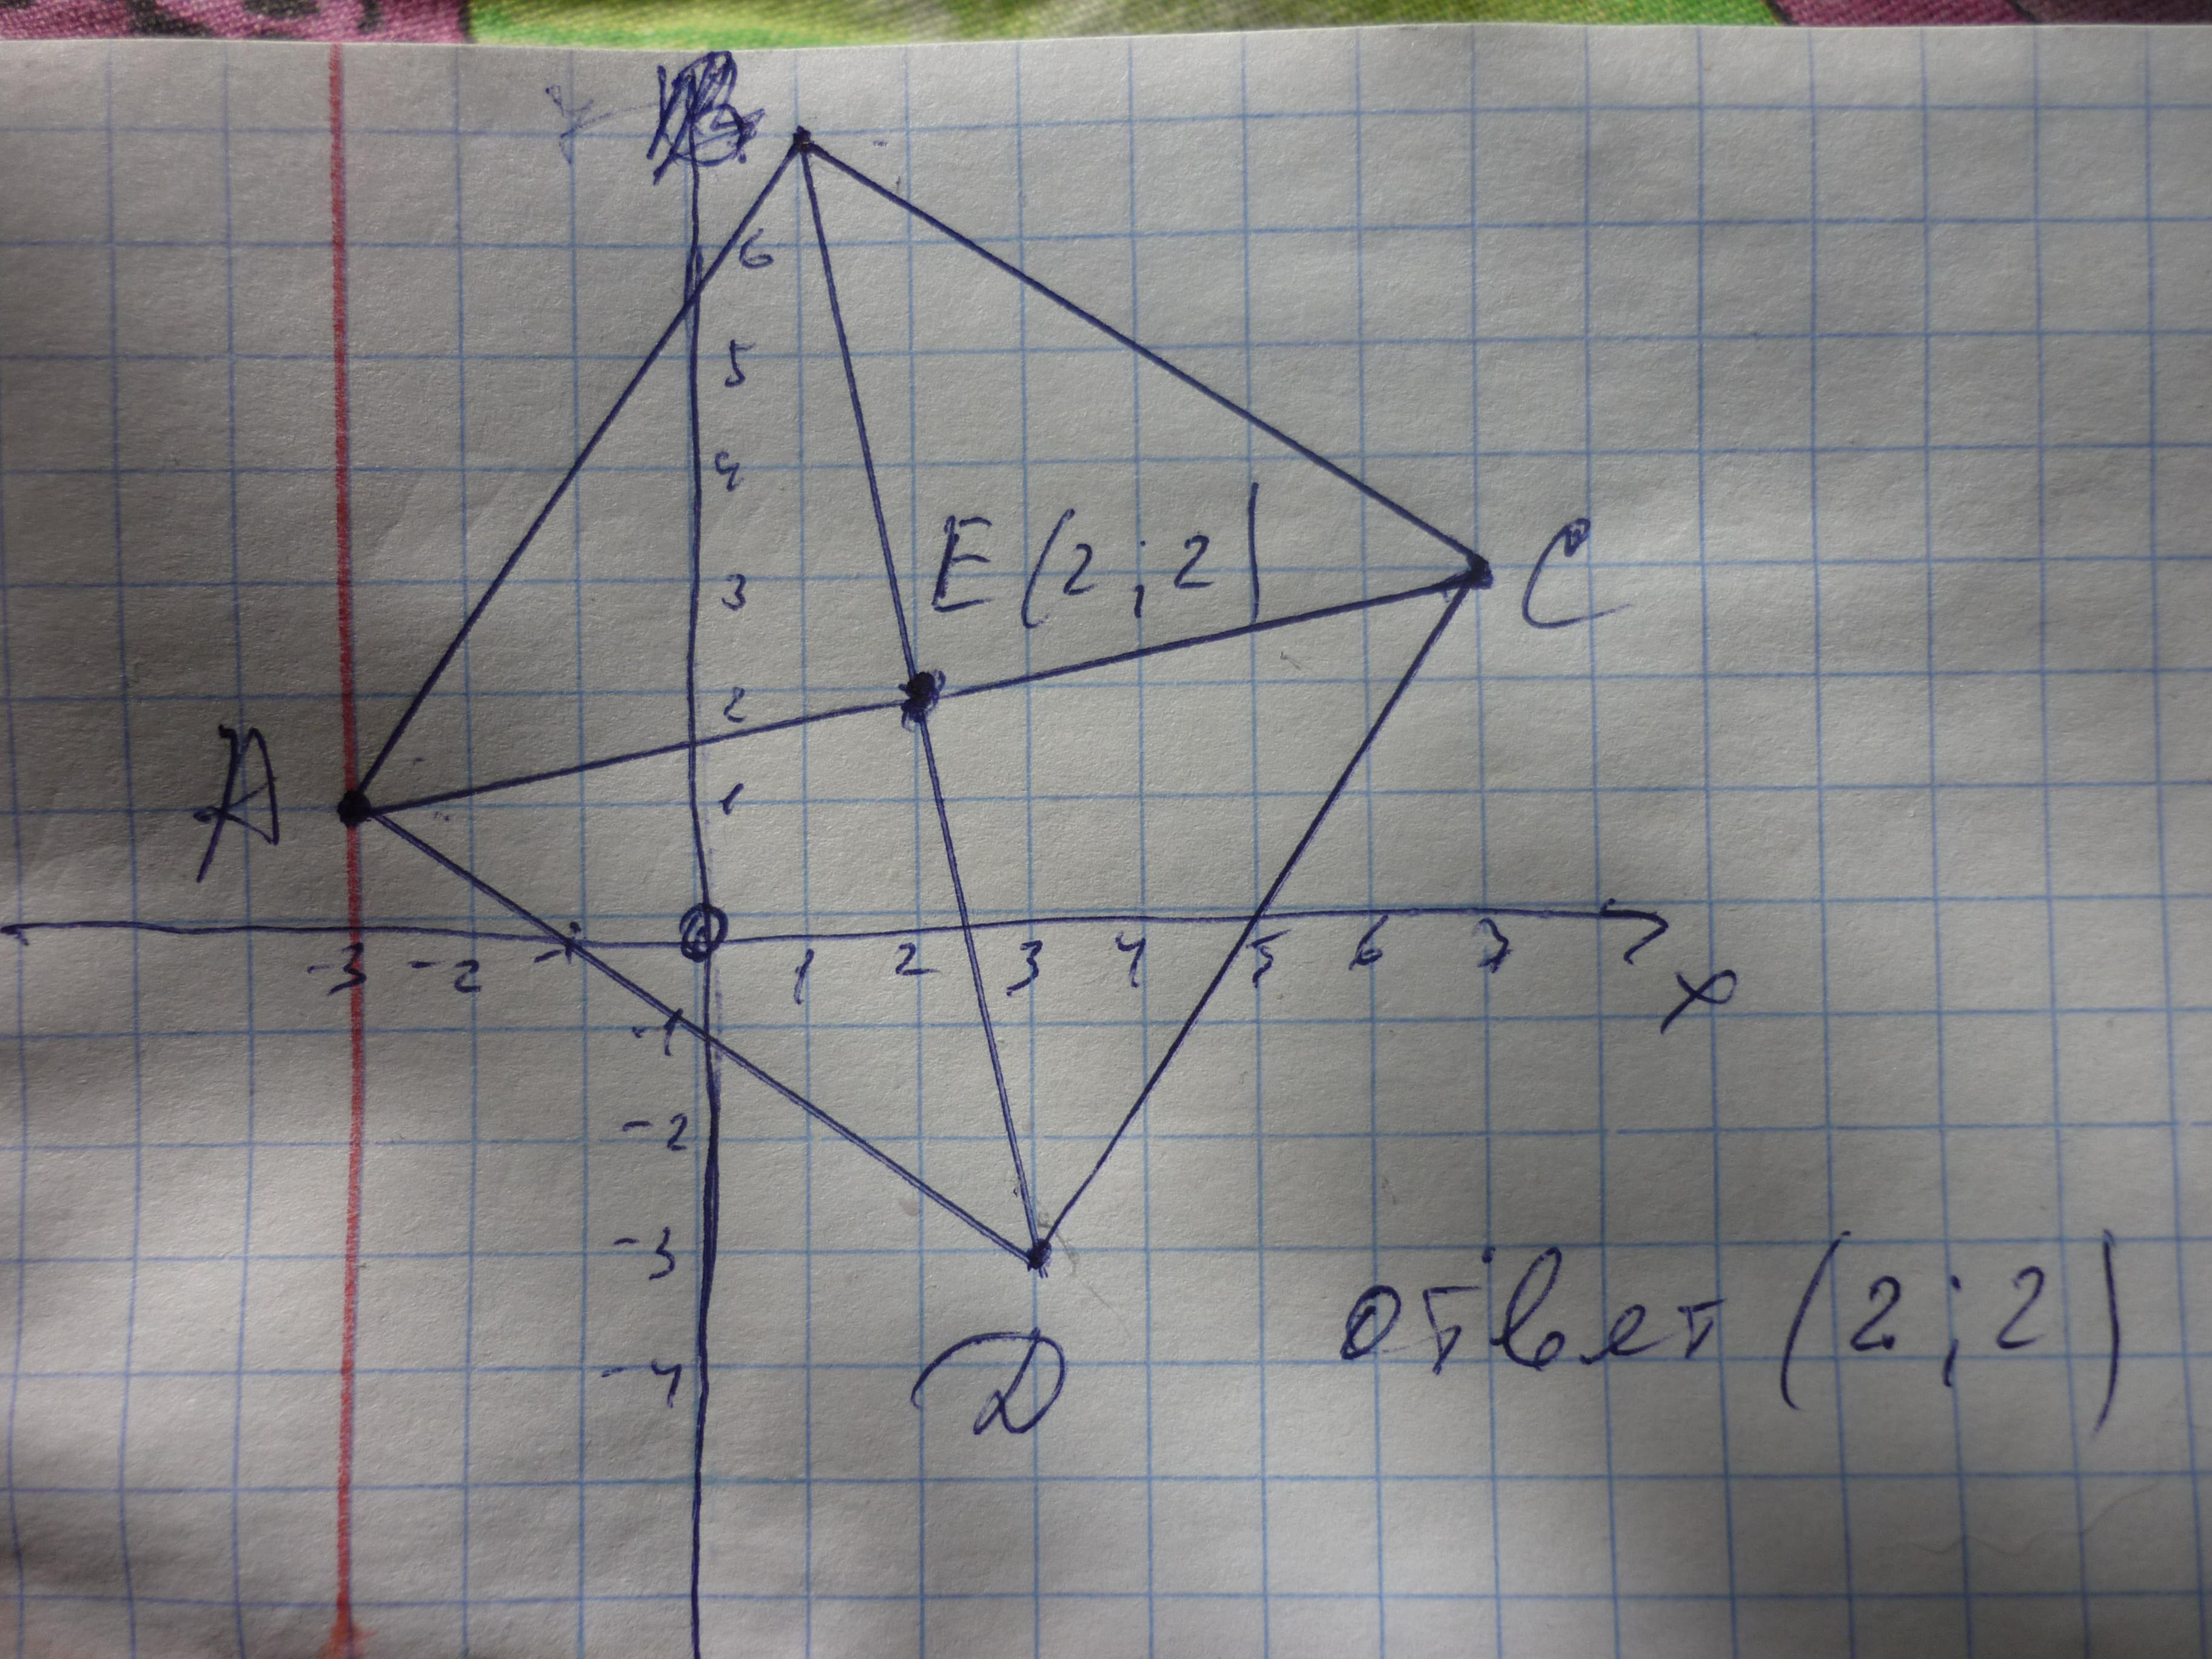 6
5
4
E (2 ; 2)
C
3
2
A
1
0
-3 -2 -1 1 2 3 4 5 6 7
x
-1
-2
-3
ответ (2 ; 2)
-4
D